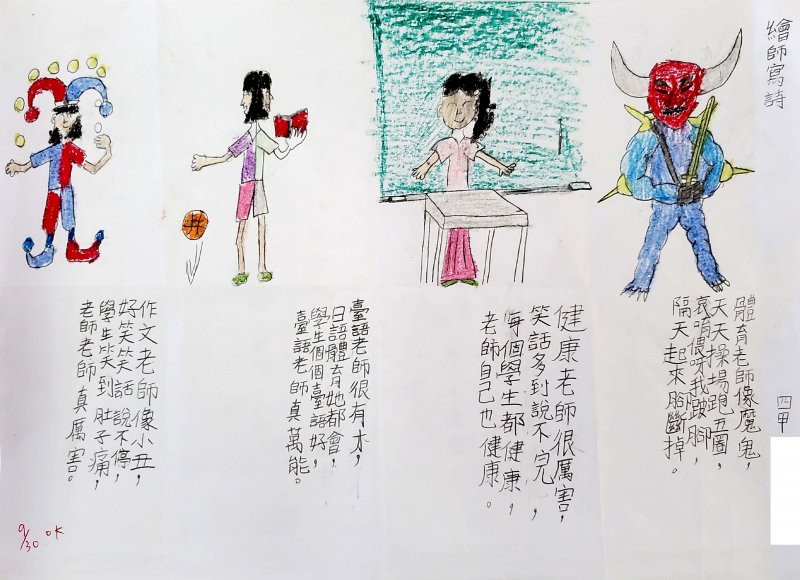 繪師寫詩
四甲
體育老師像魔鬼，
天天操場跑五圈，
哀唷偎呀我酸腳，
隔天起來腳斷掉。
健康老師很厲害，
笑話多到說不完，
每個學生都健康，
老師自己也健康。
臺語老師很有才，
日語體育她都會，
學生個個臺語好，
臺語老師真萬能。
作文老師像小丑，
好笑笑話說不停，
學生笑到肚子痛，
老師老師真厲害。
9/30 OK